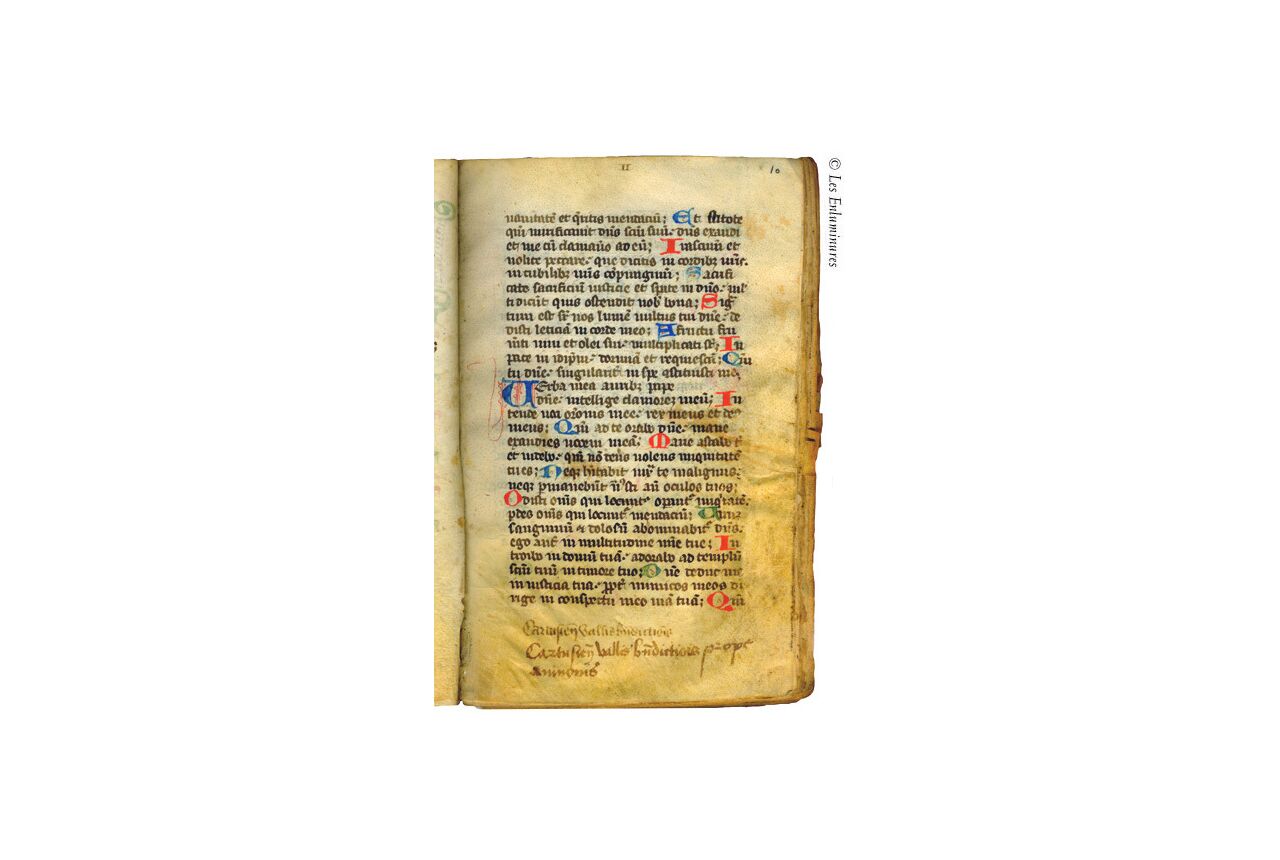 II
10
vanitatē et q̄ritis mendaciū; Et scitote
qm̄ mirificavit dn̄s scm̄ suū· dn̄s exaudi
et me cū clamavo ad eū; Irascimī et
nolite peccare· que dicitis in cordibꝫ vr̄is·
in cubilibꝫ vr̄is cōpungimī; Sacrifi
cate sacrificiū iusticie et sperate in dn̄o· mul
ti dicūt quis ostendit nob' bona; Sig
tum est sr̄ nos lumē vultus tui dn̄e· de
disti leticiā in corde meo; A fructu fru
mti vini et olei sui· multiplicati st̄; In
pace in idip̄m· dormiā et requiescā; Qm̄
tu dn̄e· singularit' in spe ɔstituisti me·
Verba mea auribꝫ percipe
dn̄e· intellige clamorem meū; In
tende voci or̄onis mee· rex meus et de'
meus; Qm̄ ad te orabo dn̄e· mane
exaudies vocem meā; Mane astabo t'
et videbo· qm̄ nō deus volens iniquitatē
tu es; Neqꝫ habitabit iux' te malignus·
neqꝫ p̄manebūt iniusti an̄ oculos tuos;
Odisti om̄s qui locunt' operant' iniq'tatē·
pdes om̄s qui locunt' mendaciū; Virum
sanguinū & dolosū abominabit' dn̄s·
ego aut̄ in multitudine mīe tue; In
troibo in domū tuā· adorabo ad templū
scm̄ tuū in timore tuo; Dn̄e deduc me
in iusticia tua· ppt' inimicos meos di
rige in conspectu meo viā tuā; Qm̄
Cartusien̄ vallis bn̄dictiōis
Cartusien̄ vallis bn̄dictiōis prope
avinionē
© Les Enluminures